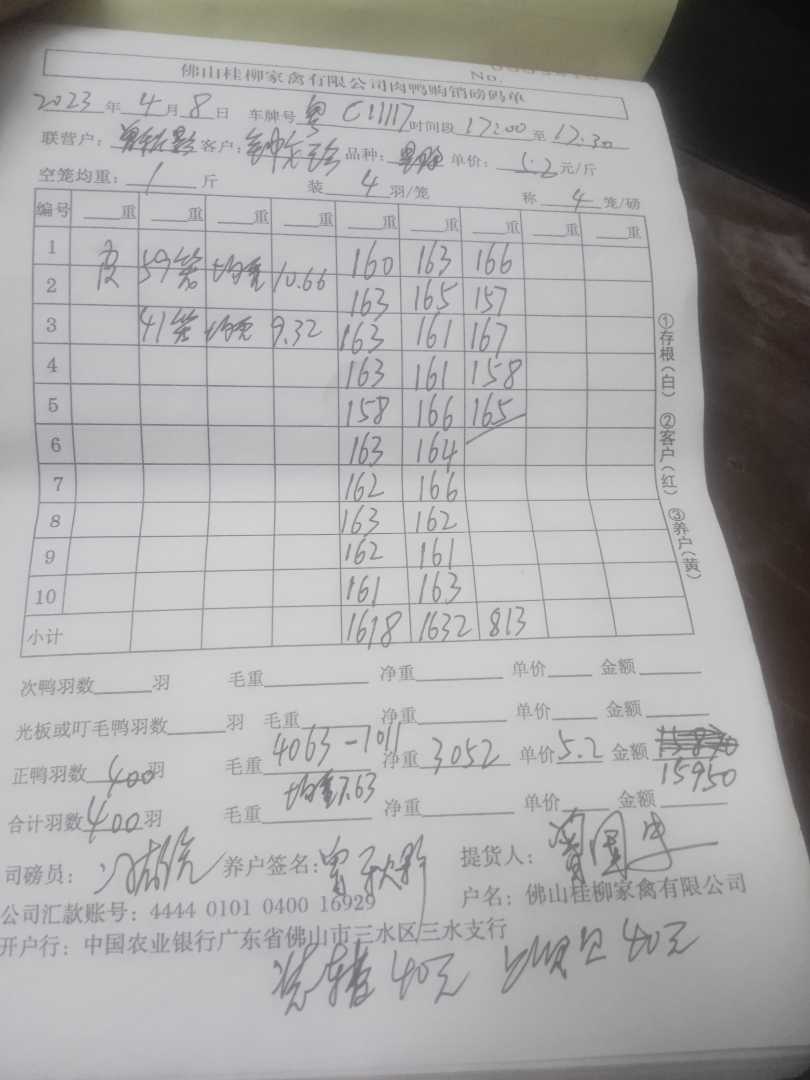 佛山桂柳家禽有限公司肉鸭购销磅码单
No.
2023年4月8日 车牌号 粤C11117 时间段17:00至17:30
联营户： 客户： 品种： 单价：5.2元/斤
空笼均重：1斤 装4羽/笼 称4笼/磅
编号 重 重 重 重 重 重 重 重 重
1 皮 59笼 均重 10.66 160 163 166
2 163 165 157
3 41笼 均重 9.32 163 161 167
4 163 161 158
5 158 166 165
6 163 164
7 162 166
8 163 162
9 162 161
10 161 163
小计 1618 1632 813
①存根(白) ②客户(红) ③养户(黄)
次鸭羽数 羽 毛重 净重 单价 金额
光板或叮毛鸭羽数 羽 毛重 净重 单价 金额
正鸭羽数400羽 毛重4063-1011 净重3052 单价5.2 金额
15950
均重7.63
合计羽数400羽 毛重 净重 单价 金额
司磅员： 养户签名： 提货人：
公司汇款账号：4444 0101 0400 16929 户名：佛山桂柳家禽有限公司
开户行：中国农业银行广东省佛山市三水区三水支行
40元 40元